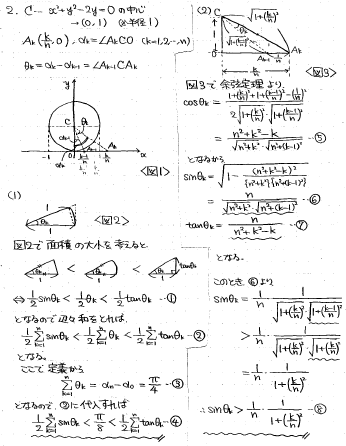 2. C… x²+y²-2y=0 の中心
→(0,1) (半径1)
A_k(k/n,0), α_k=∠A_kCO (k=1,2,…,n)
θ_k=α_k-α_{k-1}=∠A_{k-1}CA_k
y
C
θ_k
α_k
-1
0
1
A_k
x
<図1>
(1)
1
θ_k
1
<図2>
図2で面積の大小を考えると
θ_k < θ_k < θ_k tanθ_k
1 1 1
⇔ 1/2 sinθ_k < 1/2 θ_k < 1/2 tanθ_k …①
となるので辺々和をとれば、
1/2 Σ_{k=1}^{n} sinθ_k < 1/2 Σ_{k=1}^{n} θ_k < 1/2 Σ_{k=1}^{n} tanθ_k …②
となる。
ここで定義から
Σ_{k=1}^{n} θ_k = α_n-α_0 = π/4 …③
となるので、②に代入すれば
1/2 Σ_{k=1}^{n} sinθ_k < π/8 < 1/2 Σ_{k=1}^{n} tanθ_k …④
(2)
C
√(1+(k/n)²)
1
√(1+((k-1)/n)²)
0
A_k
k/n
<図3>
図3で余弦定理より、
cosθ_k = (1+(k/n)²+1+((k-1)/n)²-(1/n)²)/(2√(1+(k/n)²)·√(1+((k-1)/n)²))
= (n²+k²-k)/(√(n²+k²)·√(n²+(k-1)²)) …⑤
となるから
sinθ_k = √(1-(n²+k²-k)²/({n²+k²}{n²+(k-1)²}))
= n/(√(n²+k²)·√(n²+(k-1)²)) …⑥
tanθ_k = n/(n²+k²-k) …⑦
となる。
このとき⑥より
sinθ_k = 1/n · 1/(√(1+(k/n)²)·√(1+((k-1)/n)²))
> 1/n · 1/(√(1+(k/n)²)·√(1+(k/n)²))
= 1/n · 1/(1+(k/n)²)
∴ sinθ_k > 1/n · 1/(1+(k/n)²) …⑧